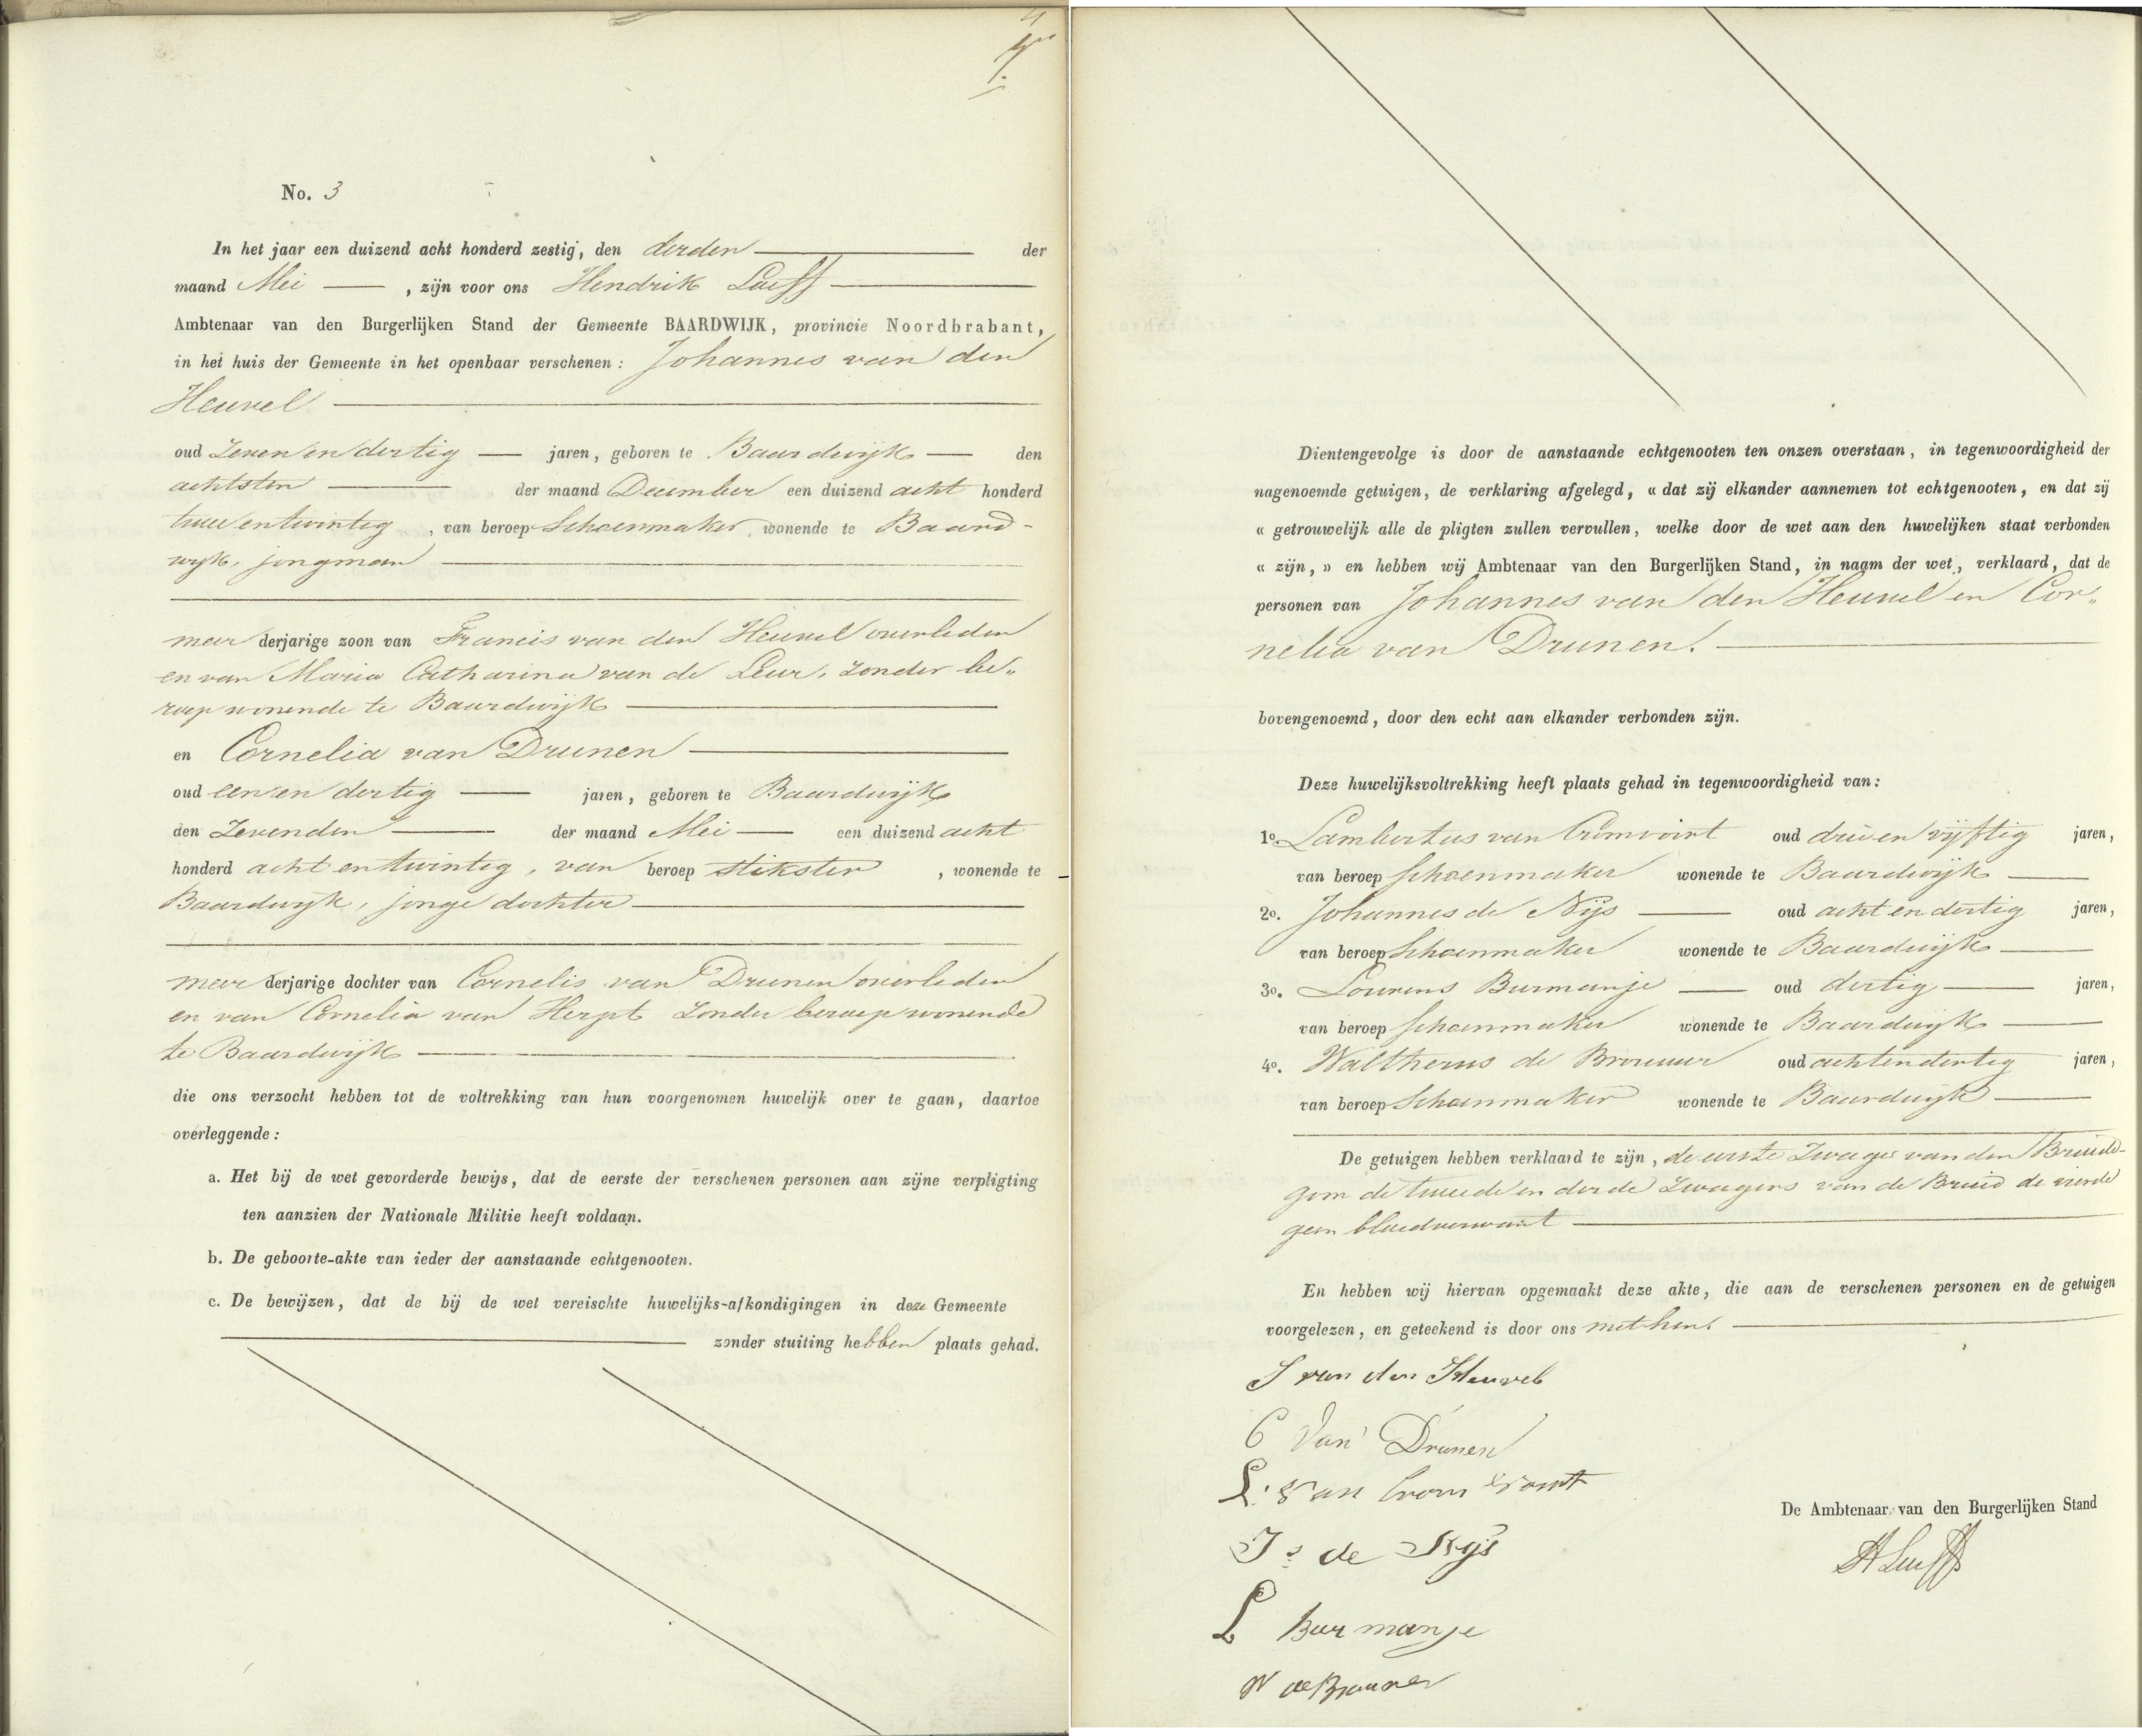 No. 3
In het jaar een duizend acht honderd zestig, den derden der
maand Mei , zijn voor ons Hendrik
Ambtenaar van den Burgerlijken Stand der Gemeente BAARDWIJK, provincie Noordbrabant,
in het huis der Gemeente in het openbaar verschenen: Johannes van den
Heuvel
oud Zeven en dertig jaren, geboren te Baardwijk den
achtsten der maand December een duizend acht honderd
twee en twintig, van beroep Schoenmaker, wonende te Baard-
wijk, jongman
meerderjarige zoon van Francis van den Heuvel overleden
en van Maria Catharina van de Leur, zonder be„
roep wonende te Baardwijk
en Cornelia van Drunen
oud een en dertig jaren, geboren te Baardwijk
den Zevenden der maand Mei een duizend acht
honderd acht en twintig, van beroep stikster, wonende te
Baardwijk, jonge dochter
meerderjarige dochter van Cornelis van Drunen overleden
en van Cornelia van Herpt Zonder beroep wonende
te Baardwijk
die ons verzocht hebben tot de voltrekking van hun voorgenomen huwelijk over te gaan, daartoe
overleggende:
a. Het bij de wet gevorderde bewijs, dat de eerste der verschenen personen aan zijne verpligting
ten aanzien der Nationale Militie heeft voldaan.
b. De geboorte-akte van ieder der aanstaande echtgenooten.
c. De bewijzen, dat de bij de wet vereischte huwelijks-afkondigingen in deze Gemeente
zonder stuiting hebben plaats gehad.
Dientengevolge is door de aanstaande echtgenooten ten onzen overstaan, in tegenwoordigheid der
nagenoemde getuigen, de verklaring afgelegd, « dat zij elkander aannemen tot echtgenooten, en dat zij
« getrouwelijk alle de pligten zullen vervullen, welke door de wet aan den huwelijken staat verbonden
« zijn, » en hebben wij Ambtenaar van den Burgerlijken Stand, in naam der wet, verklaard, dat de
personen van Johannes van den Heuvel en Cor„
nelia van Drunen.
bovengenoemd, door den echt aan elkander verbonden zijn.
Deze huwelijksvoltrekking heeft plaats gehad in tegenwoordigheid van:
1o. Lambertus van Cromvoirt oud drie en vijftig jaren,
van beroep Schoenmaker wonende te Baardwijk
2o. Johannes de Nijs oud acht en dertig jaren,
van beroep Schoenmaker wonende te Baardwijk
3o. Lourens Burmanje oud dertig jaren,
van beroep Schoenmaker wonende te Baardwijk
4o. Waltherus de Brouwer oud acht en dertig jaren,
van beroep Schoenmaker wonende te Baardwijk
De getuigen hebben verklaard te zijn, de eerste Zwager van den Bruide-
gom de tweede en derde Zwagers van de Bruid de vierde
geen bloedverwant
En hebben wij hiervan opgemaakt deze akte, die aan de verschenen personen en de getuigen
voorgelezen, en geteekend is door ons met hen.
J van den Heuvel
C Van Drunen
L. Van Cromvoirt
Js de Nijs
L Burmanje
W de Brouwer
De Ambtenaar van den Burgerlijken Stand